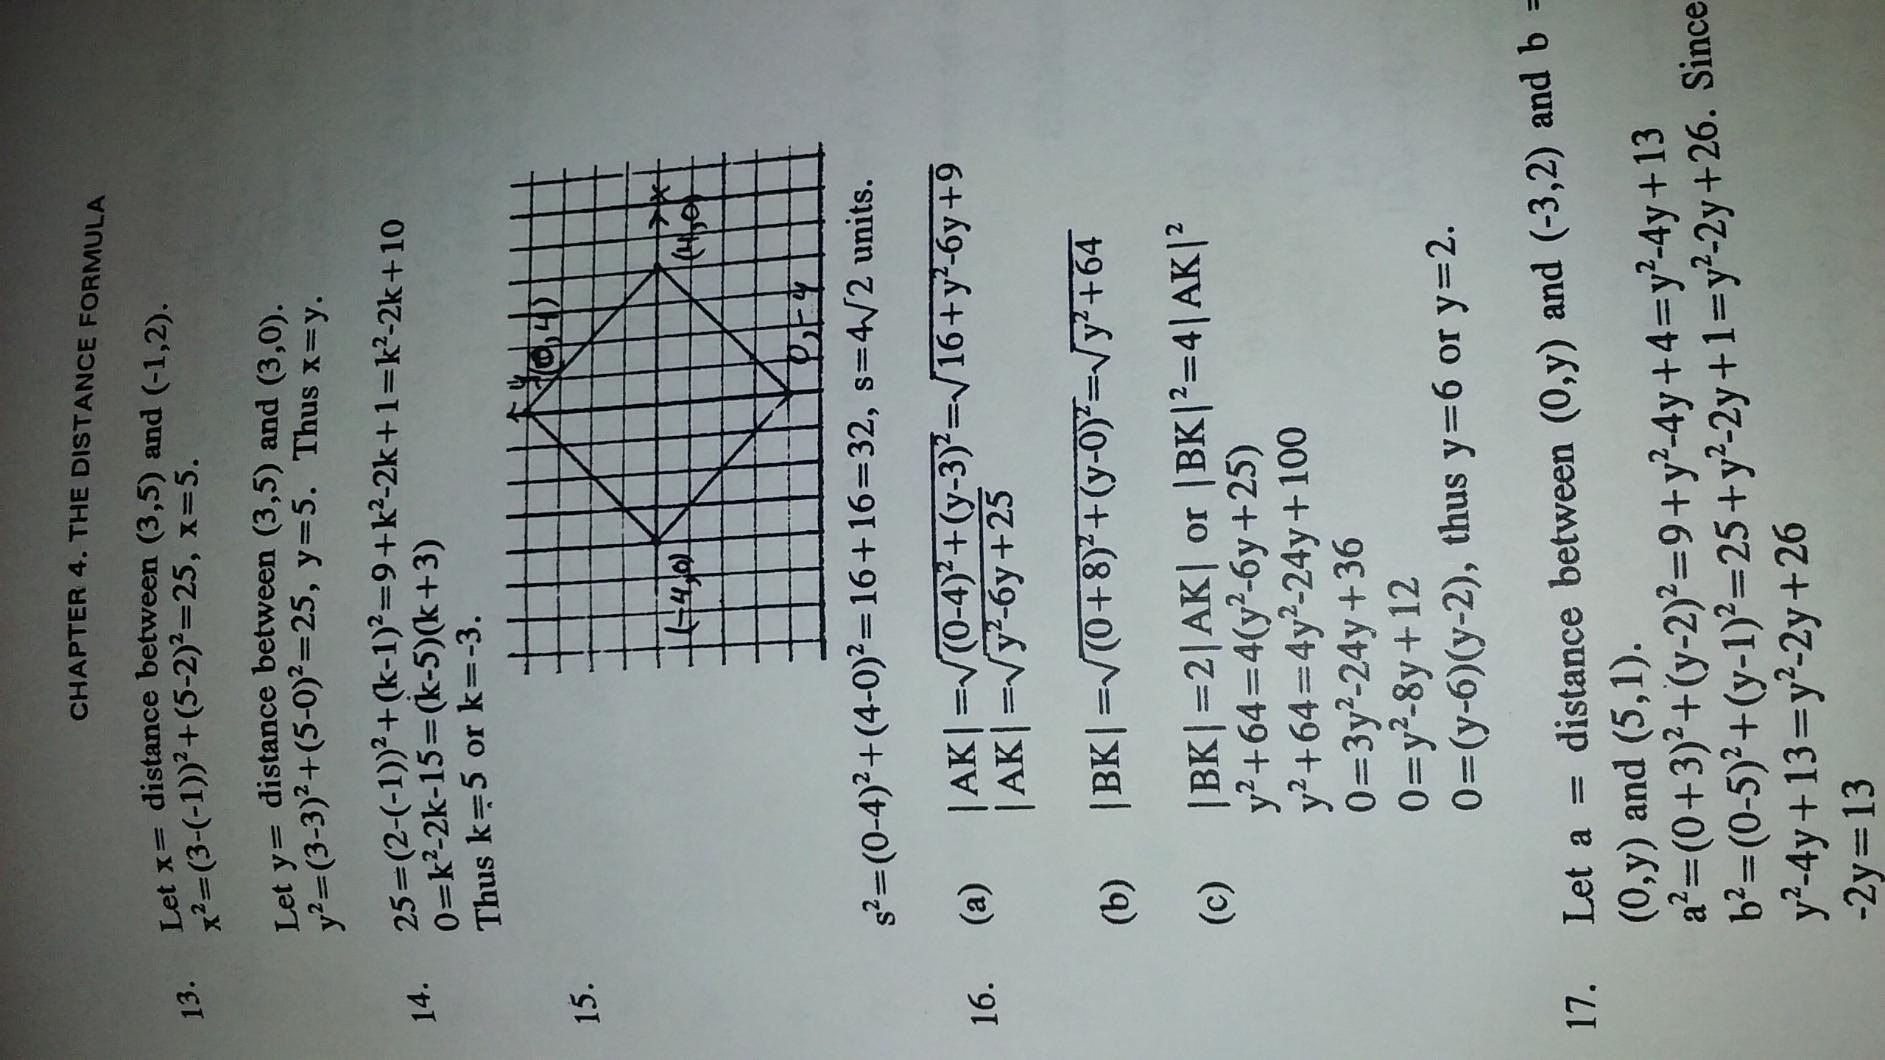 CHAPTER 4. THE DISTANCE FORMULA
13. Let x= distance between (3,5) and (-1,2).
x²=(3-(-1))²+(5-2)²=25, x=5.
Let y= distance between (3,5) and (3,0).
y²=(3-3)²+(5-0)²=25, y=5. Thus x=y.
14. 25=(2-(-1))²+(k-1)²=9+k²-2k+1=k²-2k+10
0=k²-2k-15=(k-5)(k+3)
Thus k=5 or k=-3.
15.
y
(0,4)
x
(4,0)
(-4,0)
0,-4
s²=(0-4)²+(4-0)²=16+16=32, s=4√2 units.
16. (a) |AK|=√(0-4)²+(y-3)²=√16+y²-6y+9
|AK|=√y²-6y+25
(b) |BK|=√(0+8)²+(y-0)²=√y²+64
(c) |BK|=2|AK| or |BK|²=4|AK|²
y²+64=4(y²-6y+25)
y²+64=4y²-24y+100
0=3y²-24y+36
0=y²-8y+12
0=(y-6)(y-2), thus y=6 or y=2.
17. Let a = distance between (0,y) and (-3,2) and b =
(0,y) and (5,1).
a²=(0+3)²+(y-2)²=9+y²-4y+4=y²-4y+13
b²=(0-5)²+(y-1)²=25+y²-2y+1=y²-2y+26. Since
y²-4y+13=y²-2y+26
-2y=13